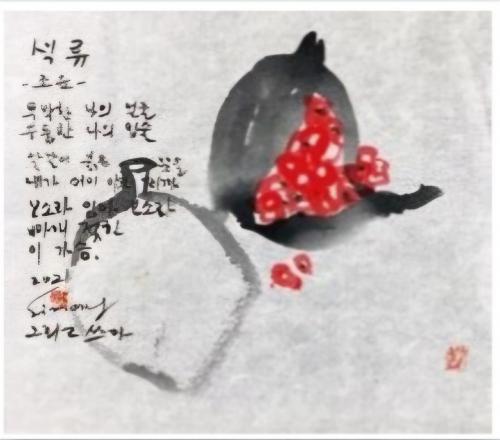 석류
-조운-
투박한 나의 얼굴
두툼한 나의 입술
알알이 붉은
내가 어이
보소라 임아 보소라
빠개 젖힌
이 가슴.
2021
그리고 쓰다